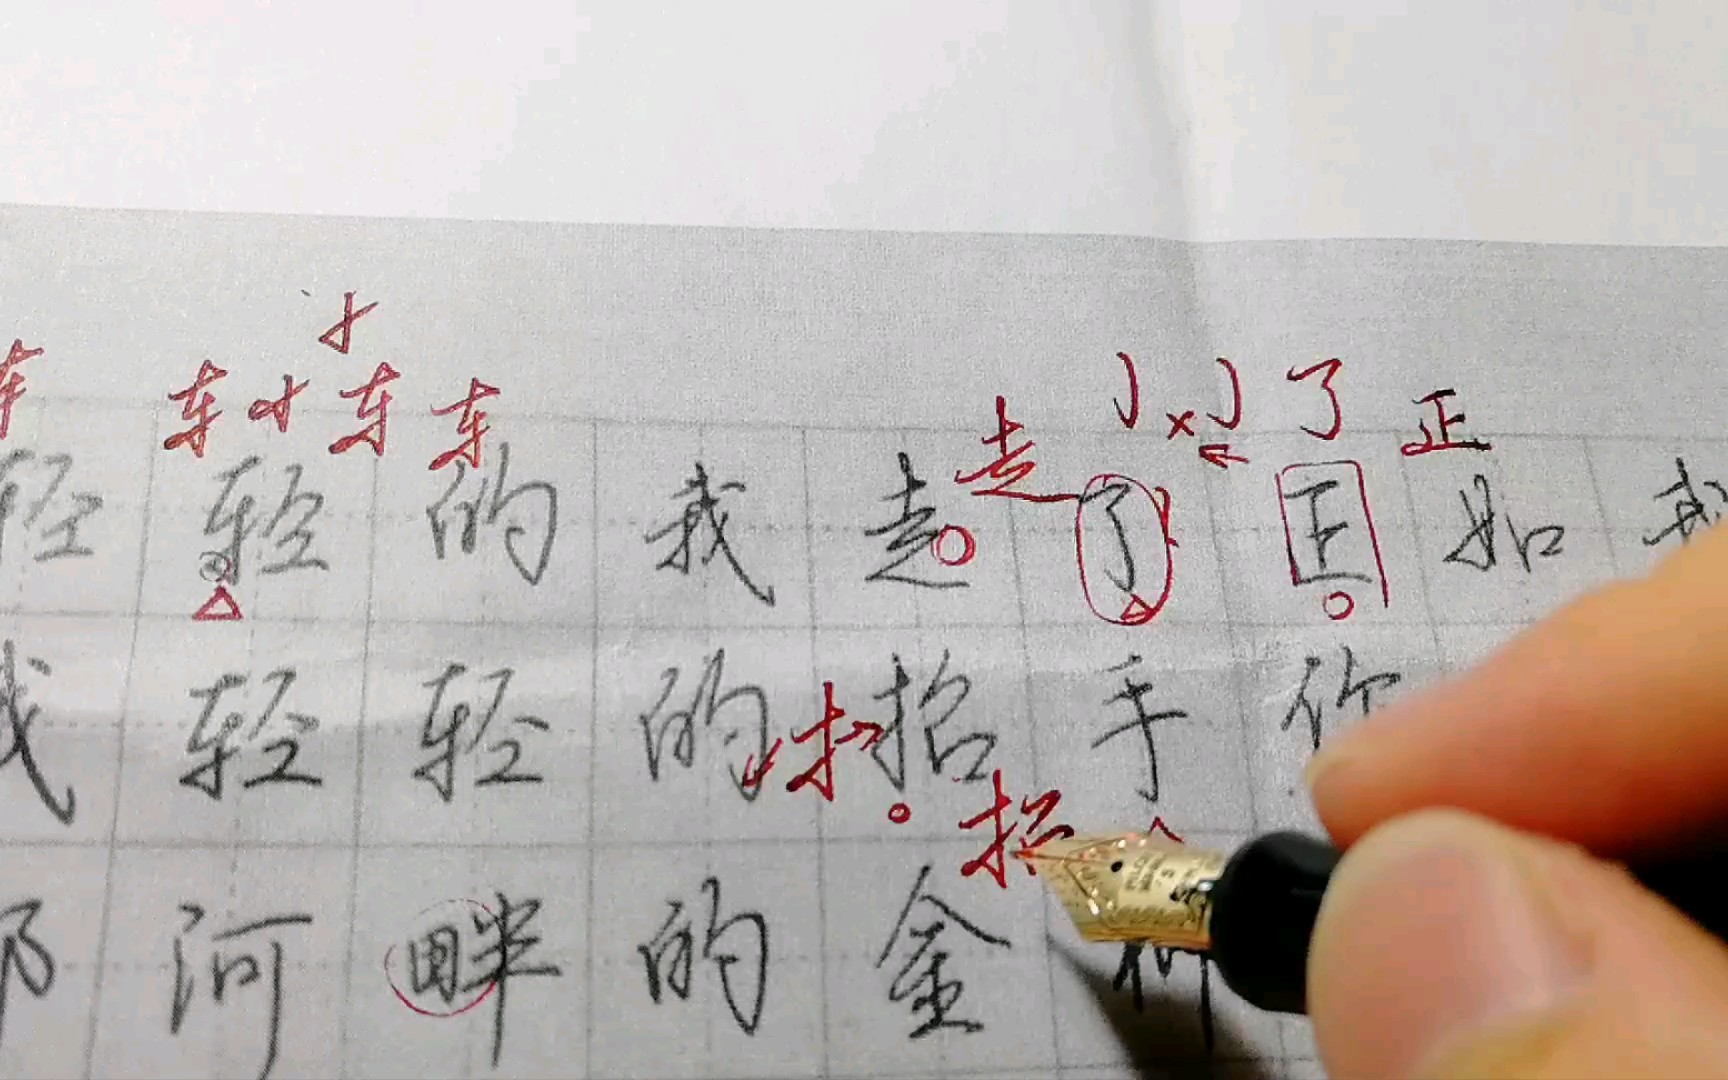 车 车 才 才 车 车
走 亅 × 亅 了 正
轻 轻 的 我 走 了 正 如 我
我 轻 轻 的 招 手 你
扌 招
那 河 畔 的 金 柳